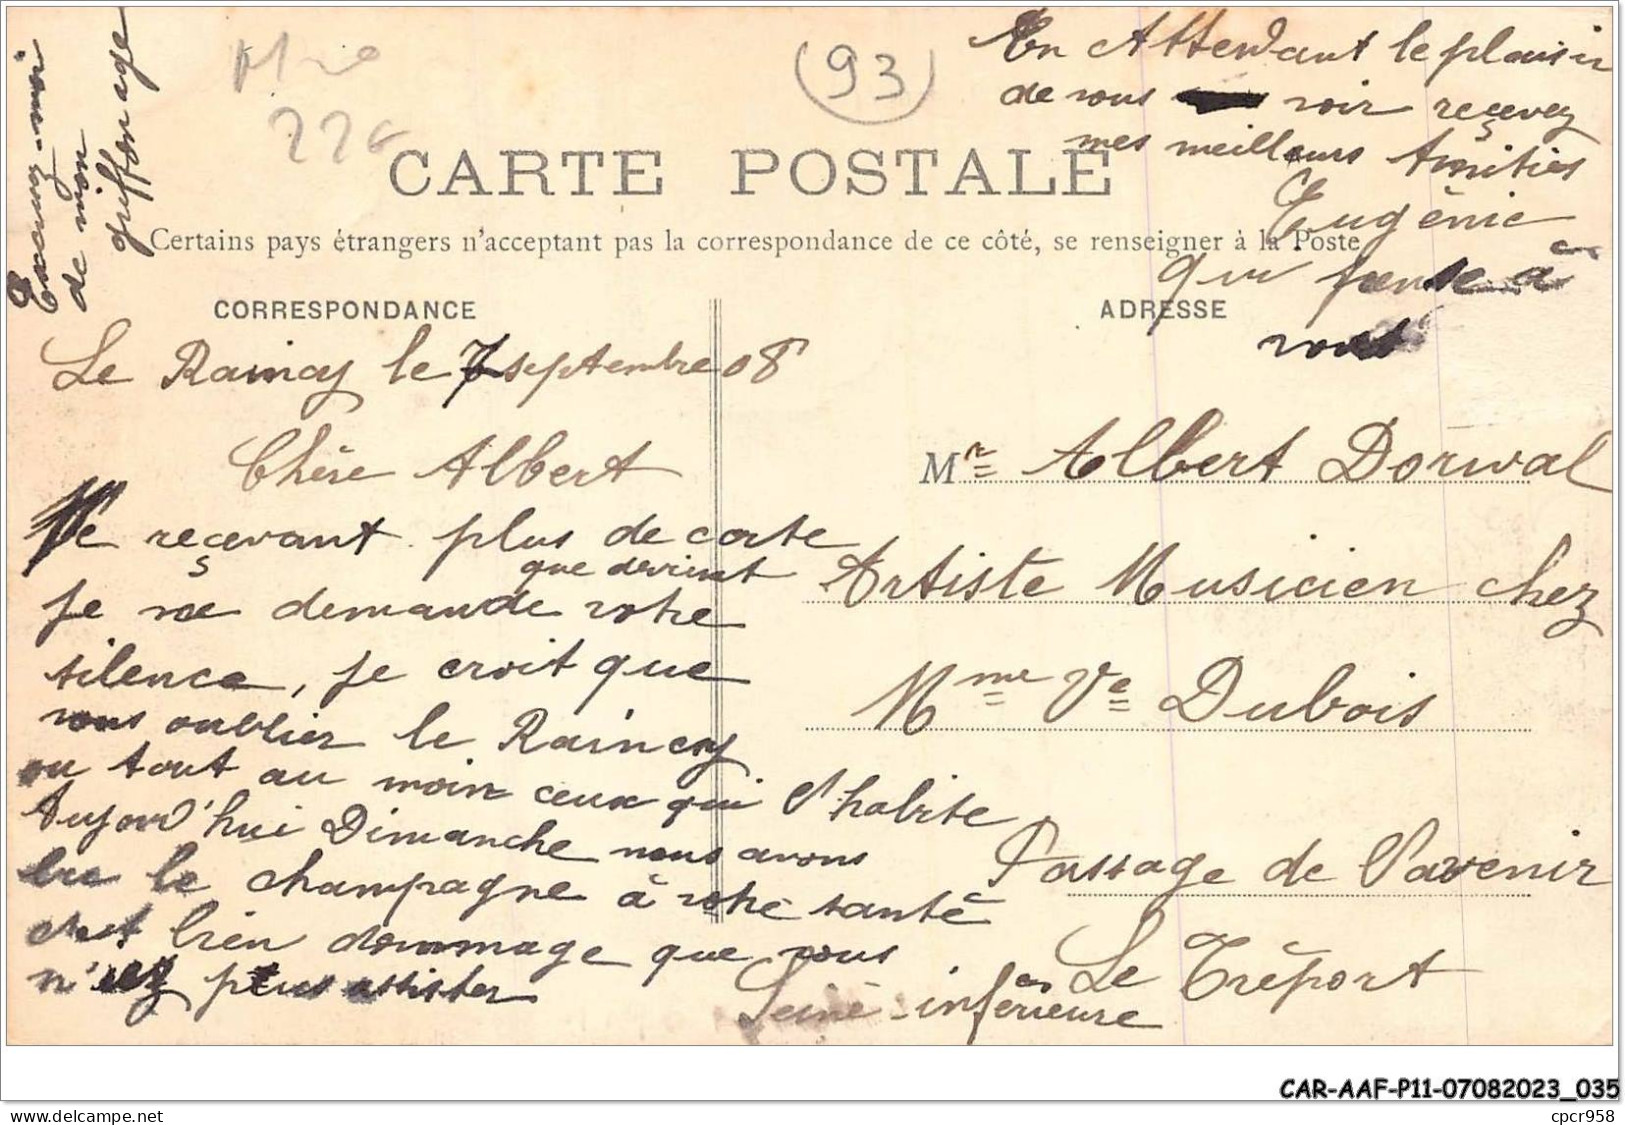 Excusez-moi
de mon
griffonage
(93)
226
En Attendant le plaisir
de vous voir reçevez
mes meilleurs Amitiés
Eugénie
qui pense à
vous
CARTE POSTALE
Certains pays étrangers n'acceptant pas la correspondance de ce côté, se renseigner à la Poste
CORRESPONDANCE
ADRESSE
Le Raincy le 7 septembre 08
Chère Albert
Ne reçevant plus de carte
que devient
je me demande votre
silence, je croit que
vous oublier le Raincy
ou tout au moin ceux qui l'habite
Aujourd'hui Dimanche nous avons
bu le champagne à votre santé
c'est bien dommage que vous
n'ez pus assister
Mr Albert Dorval
Artiste Musicien chez
Mme Ve Dubois
Passage de l'avenir
Le Tréport
Seine-inférieure
CAR-AAF-P11-07082023_035
delcampe.net
cpcr958